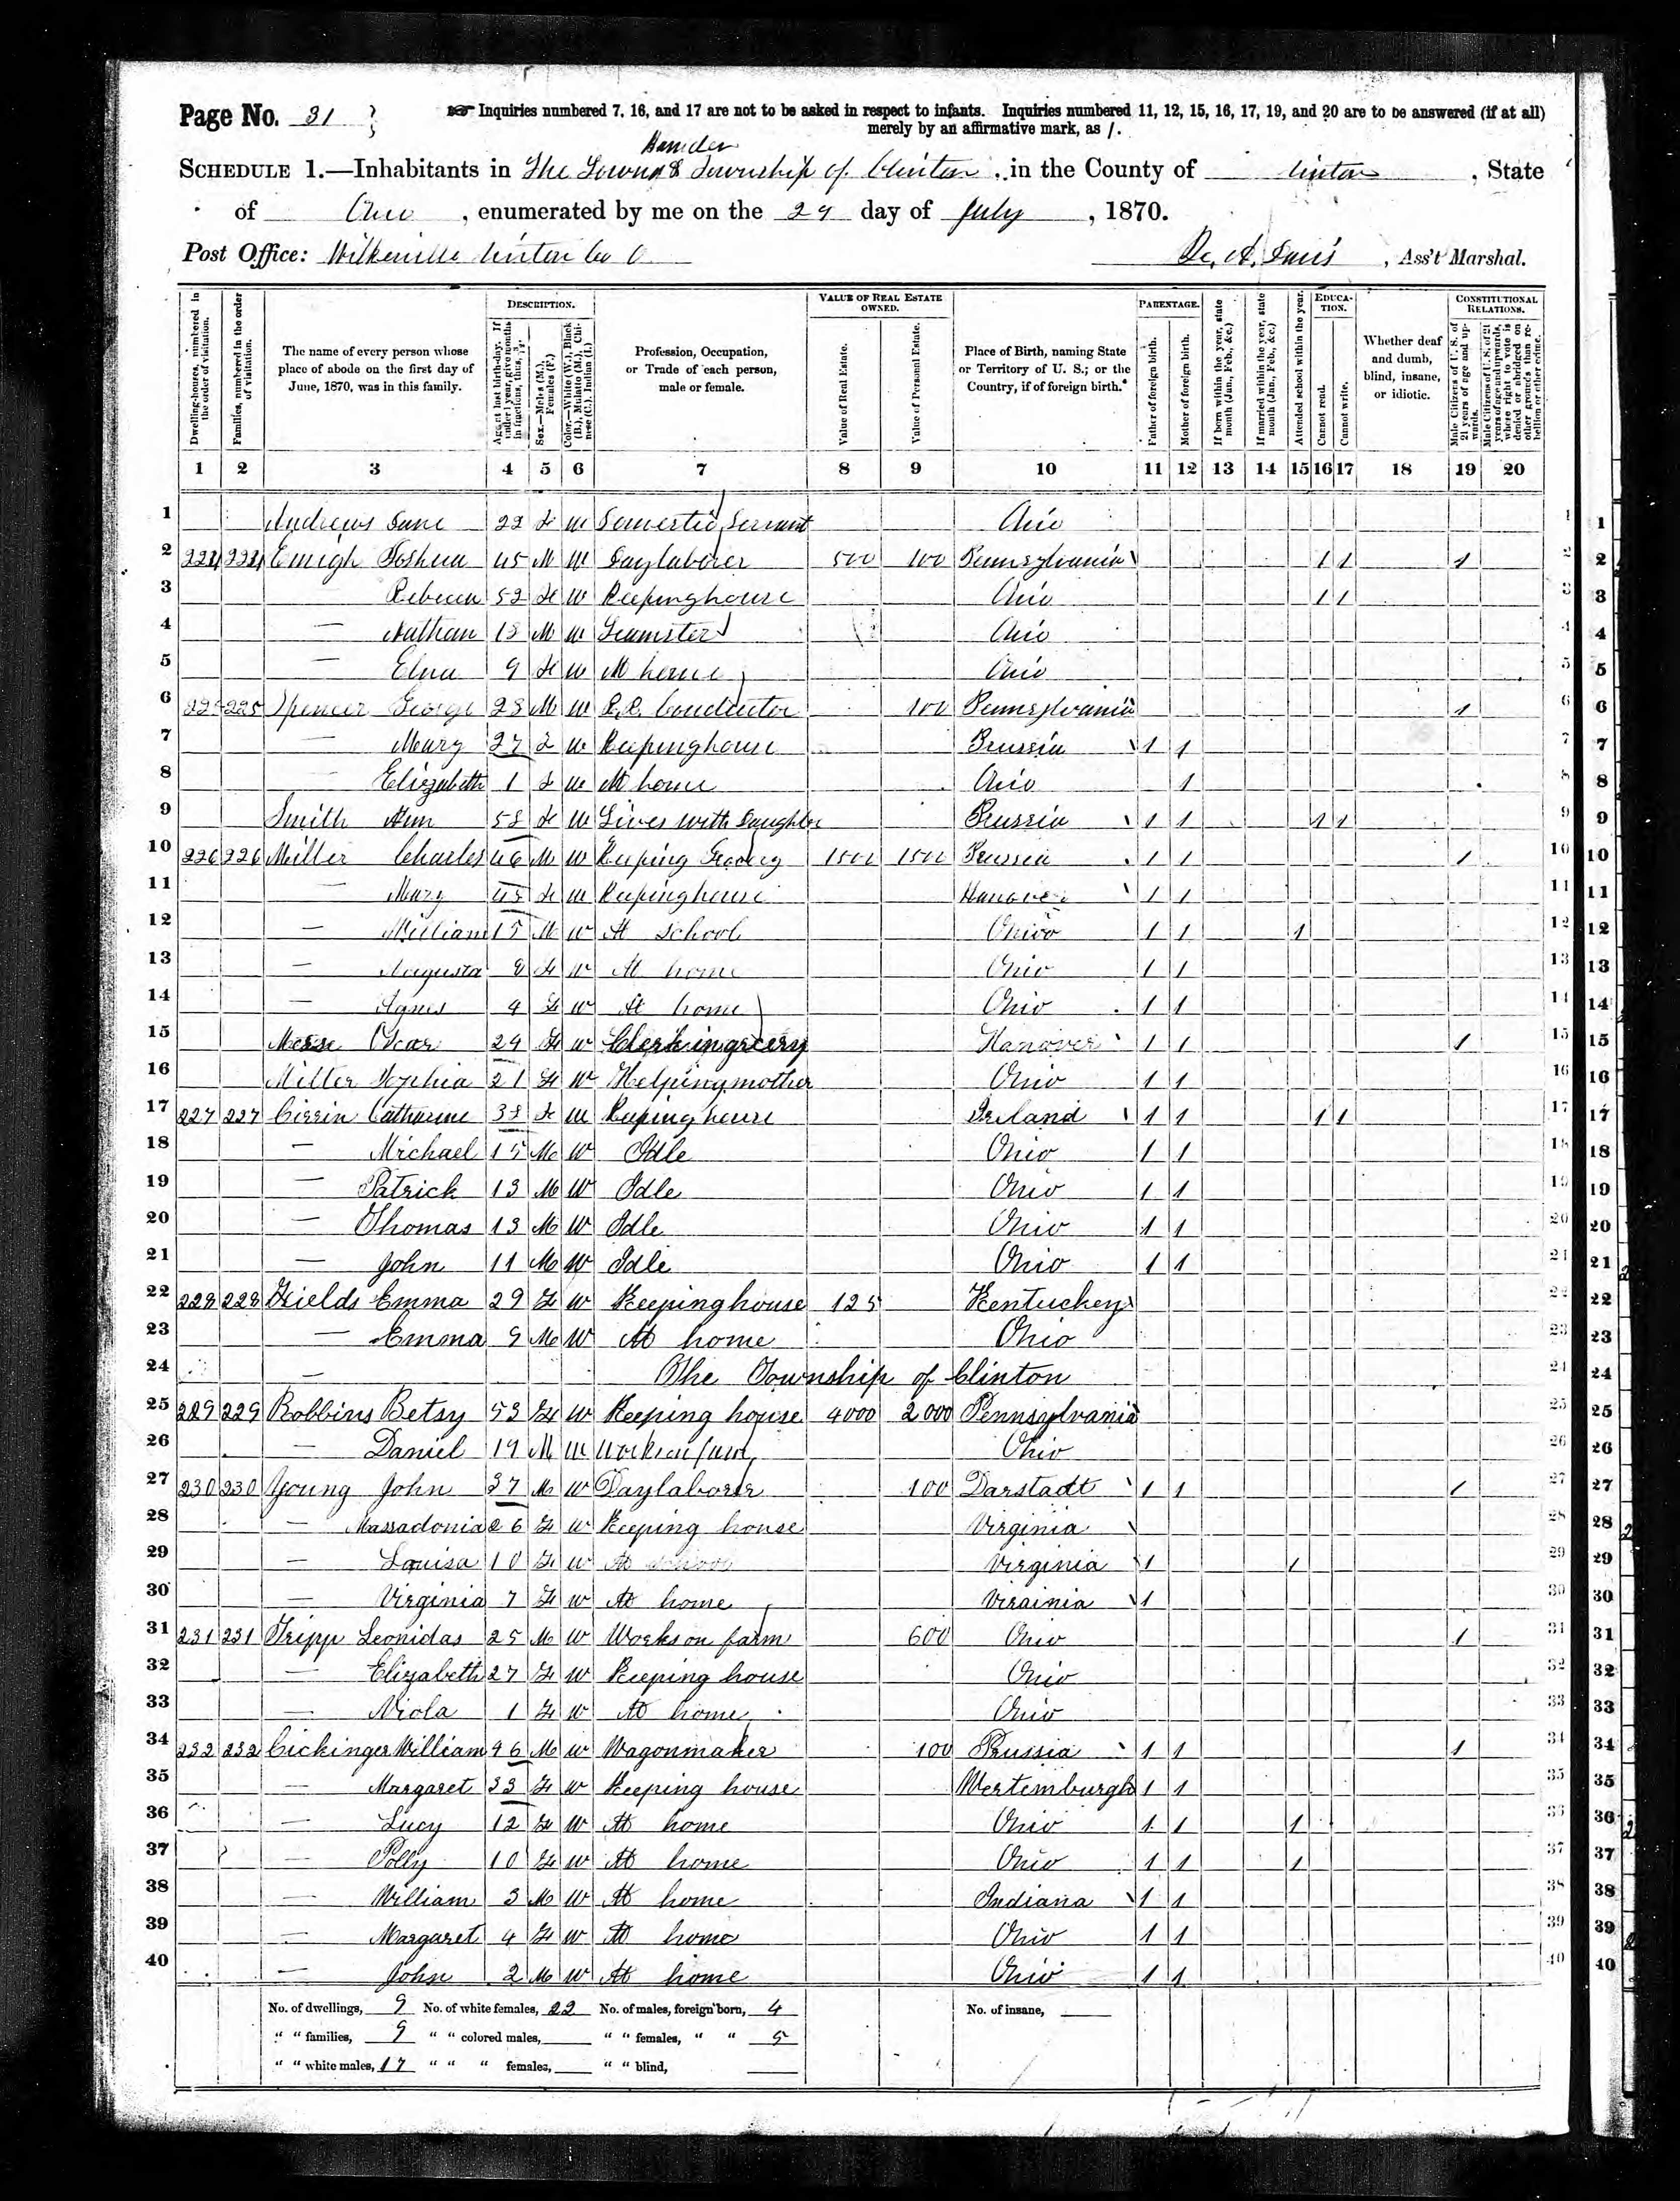 Page No. 31
Inquiries numbered 7, 16, and 17 are not to be asked in respect to infants. Inquiries numbered 11, 12, 15, 16, 17, 19, and 20 are to be answered (if at all)
merely by an affirmative mark, as /.
Hamden
SCHEDULE 1.—Inhabitants in The Town & Township of Clinton, in the County of Vinton, State
of Ohio, enumerated by me on the 29 day of July, 1870.
Post Office: Wilkesville Vinton Co O , Ass't Marshal.
Dwelling-houses, numbered in the order of visitation.
Families, numbered in the order of visitation.
The name of every person whose place of abode on the first day of June, 1870, was in this family.
DESCRIPTION.
Age at last birth-day. If under 1 year, give months in fractions, thus, 3/12.
Sex.—Males (M.), Females (F.)
Color.—White (W.), Black (B.), Mulatto (M.), Chinese (C.), Indian (I.)
Profession, Occupation, or Trade of each person, male or female.
VALUE OF REAL ESTATE OWNED.
Value of Real Estate.
Value of Personal Estate.
Place of Birth, naming State or Territory of U. S.; or the Country, if of foreign birth.*
PARENTAGE.
Father of foreign birth.
Mother of foreign birth.
If born within the year, state month (Jan., Feb., &c.)
If married within the year, state month (Jan., Feb., &c.)
Attended school within the year.
EDUCATION.
Cannot read.
Cannot write.
Whether deaf and dumb, blind, insane, or idiotic.
CONSTITUTIONAL RELATIONS.
Male Citizens of U. S. of 21 years of age and upwards.
Male Citizens of U. S. of 21 years of age and upwards, whose right to vote is denied or abridged on other grounds than rebellion or other crime.
1 2 3 4 5 6 7 8 9 10 11 12 13 14 15 16 17 18 19 20
1 Andrews Jane 22 F W Domestic Servant Ohio 1
2 224 224 Emigh Joshua 45 M W Day laborer 500 100 Pennsylvania 1 1 1 2
3 Rebecca 52 F W Keeping house Ohio 1 1 3
4 — Nathan 18 M W Teamster Ohio 4
5 — 9 F W At home Ohio 5
6 225 225 Spencer George 28 M W R.R. Conductor 100 Pennsylvania 1 6
7 — Mary 27 F W Keeping house Prussia 1 1 7
8 — Elizabeth 1 F W At home Ohio 1 8
9 Smith Ann 58 F W Lives with Daughter Prussia 1 1 1 1 9
10 226 226 Miller Charles 46 M W Keeping Grocery 1500 1500 Prussia 1 1 1 10
11 — Mary 45 F W Keeping house Hanover 1 1 11
12 — William 15 M W At school Ohio 1 1 1 12
13 — Augusta 8 F W At home Ohio 1 1 13
14 — Agnes 4 F W At home Ohio 1 1 14
15 Oscar 29 W Clerk in grocery Hanover 1 1 1 15
16 Miller Sophia 21 F W Helping mother Ohio 1 1 16
17 227 227 Catharine 38 F W Keeping house Ireland 1 1 1 1 17
18 — Michael 15 M W Idle Ohio 1 1 18
19 — Patrick 13 M W Idle Ohio 1 1 19
20 — Thomas 13 M W Idle Ohio 1 1 20
21 — John 11 M W Idle Ohio 1 1 21
22 228 228 Fields Emma 29 F W Keeping house 125 Kentuckey 22
23 — Emma 9 M W At home Ohio 23
24 — The Township of Clinton 24
25 229 229 Robbins Betsy 53 F W Keeping house 4000 2000 Pennsylvania 25
26 — Daniel 19 M W Works on farm Ohio 26
27 230 230 Young John 37 M W Day laborer 100 Darstadt 1 1 1 27
28 — Massadonia 26 F W Keeping house Virginia 28
29 — Louisa 10 F W At school Virginia 1 1 29
30 — Virginia 7 F W At home Virginia 1 30
31 231 231 Tripp Leonidas 25 M W Works on farm 600 Ohio 1 31
32 — Elizabeth 27 F W Keeping house Ohio 32
33 — Viola 1 F W At home Ohio 33
34 232 232 Cickinger William 46 M W Wagonmaker 100 Prussia 1 1 1 34
35 — Margaret 33 F W Keeping house Wertemburgh 1 1 35
36 — Lucy 12 F W At home Ohio 1 1 1 36
37 — Polly 10 F W At home Ohio 1 1 1 37
38 — William 3 M W At home Indiana 1 1 38
39 — Margaret 4 F W At home Ohio 1 1 39
40 — John 2 M W At home Ohio 1 1 40
No. of dwellings, 9 No. of white females, 22 No. of males, foreign born, 4 No. of insane,
" " families, 9 " " colored males, " " females, " " 5
" " white males, 17 " " " females, " " blind,